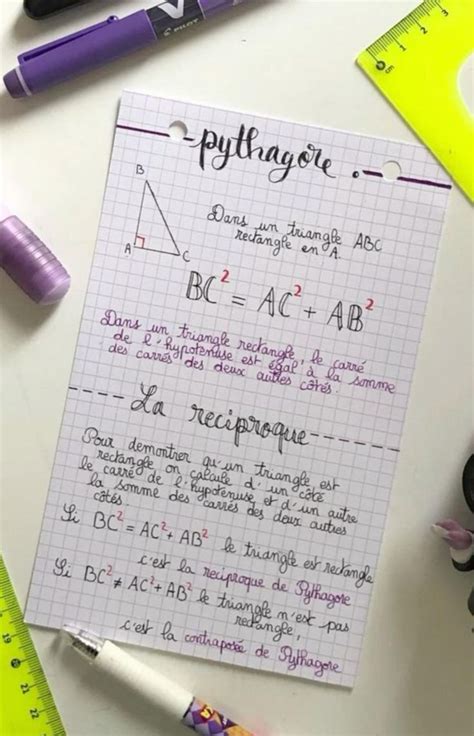 PILOT
cm 1 2 3
pythagore.
B
A
C
Dans un triangle ABC
rectangle en A.
BC² = AC² + AB²
Dans un triangle rectangle, le carré
de l'hypoténuse est égal à la somme
des carrés des deux autres côtés.
La reciproque
Pour demontrer qu'un triangle est
rectangle, on calcule d'un côté
le carré de l'hypoténuse et d'un autre
la somme des carrés des deux autres
côtés.
Si BC² = AC² + AB² le triangle est rectangle
c'est la reciproque de Pythagore
Si BC² ≠ AC² + AB² le triangle n'est pas
rectangle,
c'est la contraposée de Pythagore
19
20
21
22